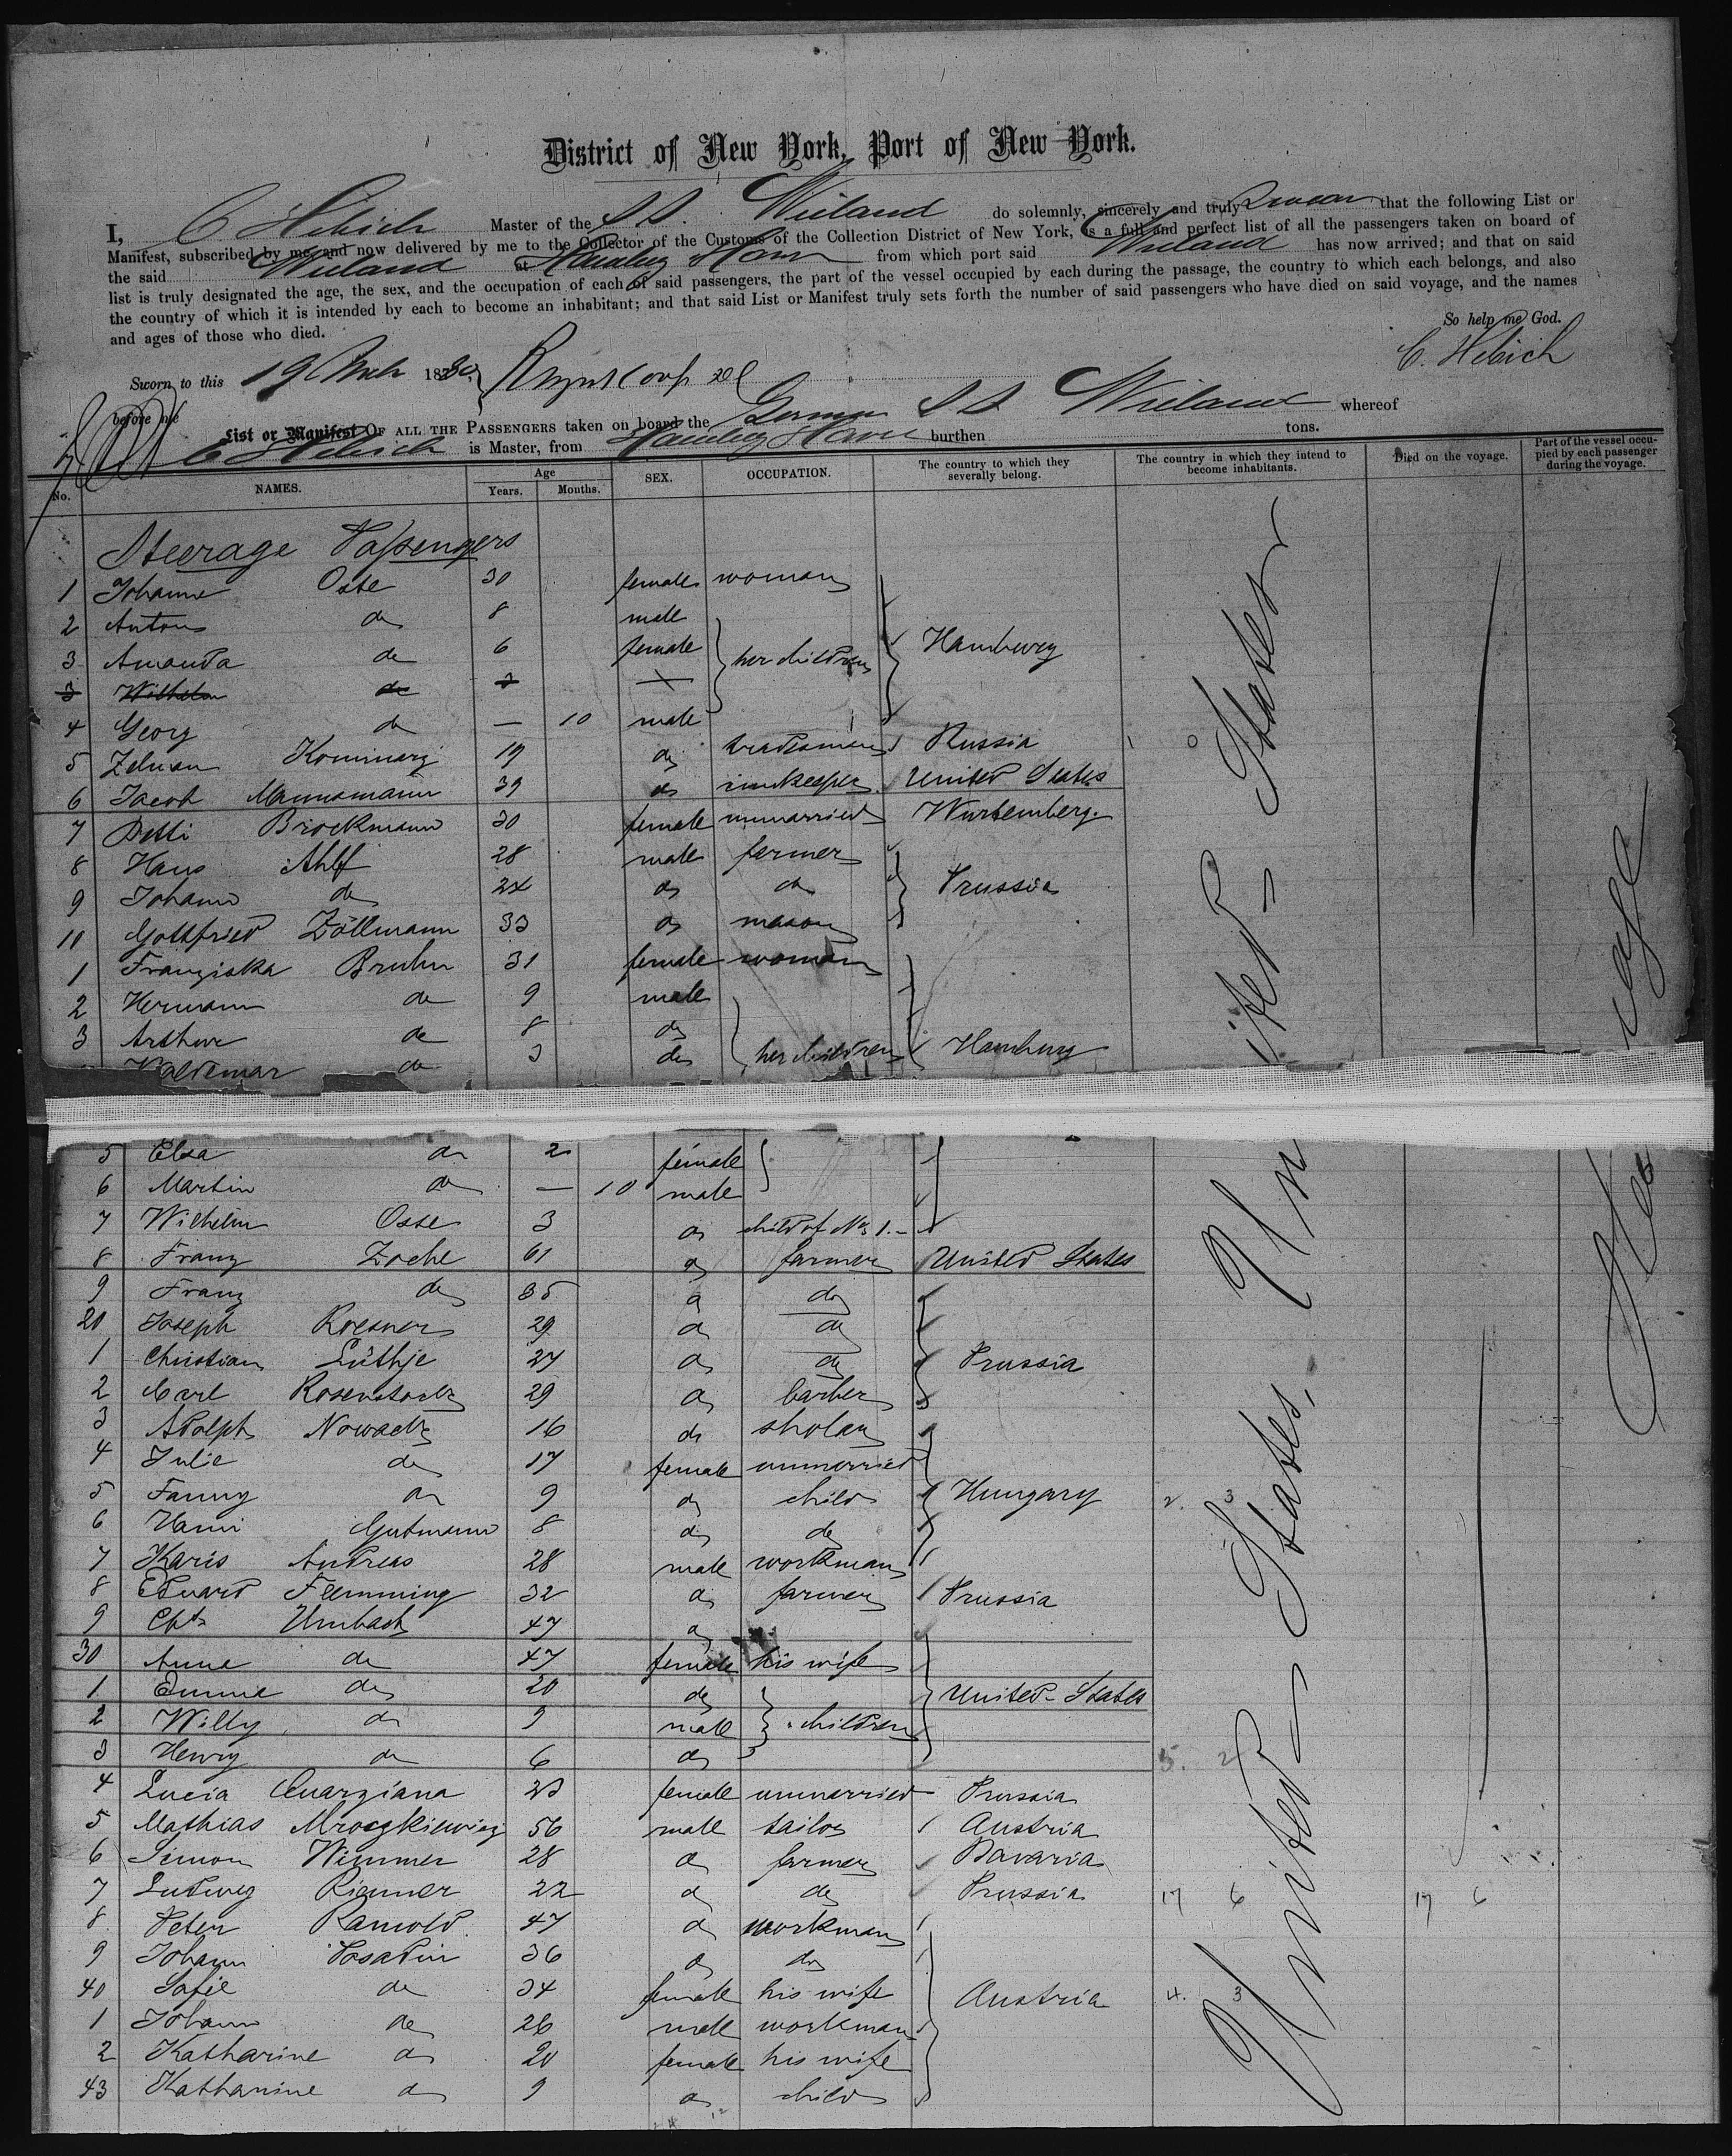 District of New York, Port of New York.
I, C Hebich Master of the S S. Wieland do solemnly, sincerely and truly swear that the following List or
Manifest, subscribed by me, and now delivered by me to the Collector of the Customs of the Collection District of New York, is a full and perfect list of all the passengers taken on board of
the said Wieland at Hamburg Havre from which port said Wieland has now arrived; and that on said
list is truly designated the age, the sex, and the occupation of each of said passengers, the part of the vessel occupied by each during the passage, the country to which each belongs, and also
the country of which it is intended by each to become an inhabitant; and that said List or Manifest truly sets forth the number of said passengers who have died on said voyage, and the names
and ages of those who died. So help me God.
Sworn to this 19 March 1880 C. Hebich
before me
List or Manifest OF ALL THE PASSENGERS taken on board the German S S Wieland whereof
C Hebich is Master, from Hamburg Havre burthen tons.
No. NAMES. Age Years. Months. SEX. OCCUPATION. The country to which they severally belong. The country in which they intend to become inhabitants. Died on the voyage. Part of the vessel occupied by each passenger during the voyage.
Steerage Passengers
1 Johanne Osse 30 female woman
2 Anton do 8 male
3 Amanda do 6 female her children Hamburg
3 Wilhelm do 3
4 Georg do — 10 male
5 Zelman 19 do tradesman Russia 1 0
6 Jacob Mannsmann 39 do innkeeper United States
7 Betti Brockmann 30 female unmarried Wurtemberg.
8 Hans Ahlf 28 male farmer
9 Johann do 24 do do Prussia
10 Gottfried Zöllmann 33 do mason
1 Franziska Bruhn 31 female woman
2 Hermann do 9 male
3 Arthur do 8 do
Waldemar do 3 do her children Hamburg
5 Elsa do 2 female
6 Martin do — 10 male
7 Wilhelm Osse 3 do child of No 1.-
8 Franz Zoche 61 do farmer United States
9 Franz do 35 do do
20 Joseph Roesner 29 do do
1 Christian Lüthje 27 do do Prussia
2 Carl Rosenstock 29 do barber
3 Adolph Nowack 16 do sholar
4 Julie do 17 female unmarried
5 Fanny do 9 do child Hungary 2. 3
6 Hani Gutmann 8 do do
7 Karis Andreas 28 male workman
8 Eduard Flemming 32 do farmer Prussia
9 Chr Umbach 47 do
30 Anna do 47 female his wife
1 Emma do 20 do United States
2 Willy do 9 male children
3 Henry do 6 do 5. 2
4 Lucia Quarziana 23 female unmarried Prussia
5 Mathias Mroczkiewicz 56 male tailor Austria
6 Simon Wimmer 28 do farmer Bavaria
7 Ludwig Riemer 22 do do Prussia 17 6 17 6
8 Peter Ramold 47 do workman
9 Johann Posadin 36 do do
40 Sofie do 34 female his wife Austria 4. 3
1 Johann do 26 male workman
2 Katharine do 20 female his wife
43 Katharine do 9 do child
United States, United States
Steerage